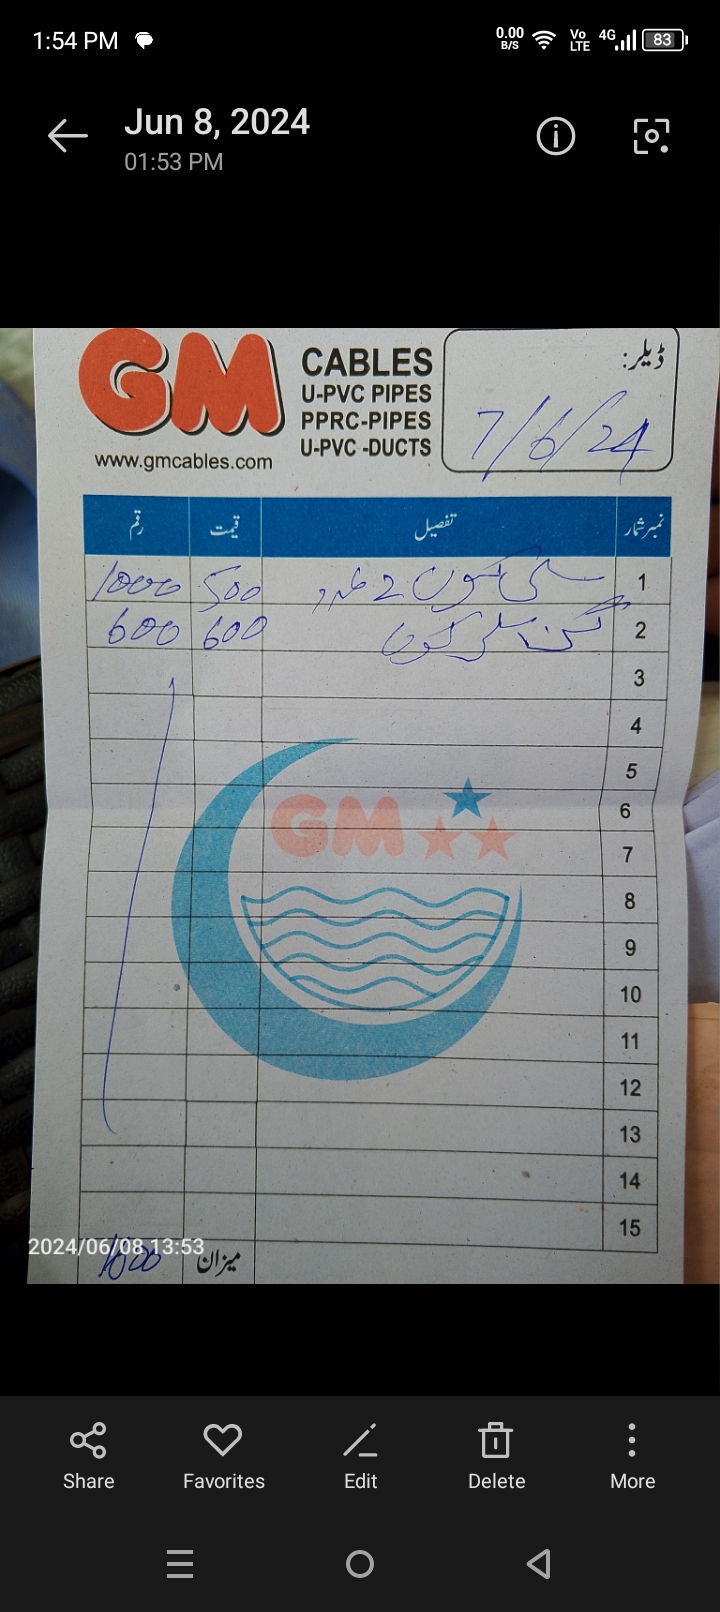 1:54 PM 0.00 B/S Vo LTE 4G 83
Jun 8, 2024
01:53 PM
GM
CABLES
U-PVC PIPES
PPRC-PIPES
U-PVC -DUCTS
www.gmcables.com
ڈیلر:
7/6/24
نمبر شمار تفصیل قیمت رقم
1 سلی کون 2 عدد 500 1000
2 گن سلی کون 600 600
3
4
5
6
GM
7
8
9
10
11
12
13
14
15
2024/06/08 13:53
میزان 1600
Share Favorites Edit Delete More